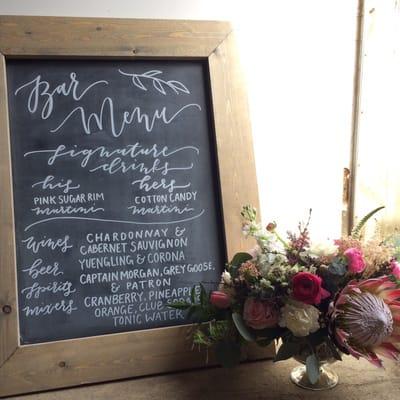 Bar
Menu
Signature
drinks
his hers
PINK SUGAR RIM COTTON CANDY
martini martini
Wines CHARDONNAY &
CABERNET SAUVIGNON
beer YUENGLING & CORONA
Spirits CAPTAIN MORGAN, GREY GOOSE,
& PATRON
mixers CRANBERRY, PINEAPPLE
ORANGE, CLUB SODA
TONIC WATER